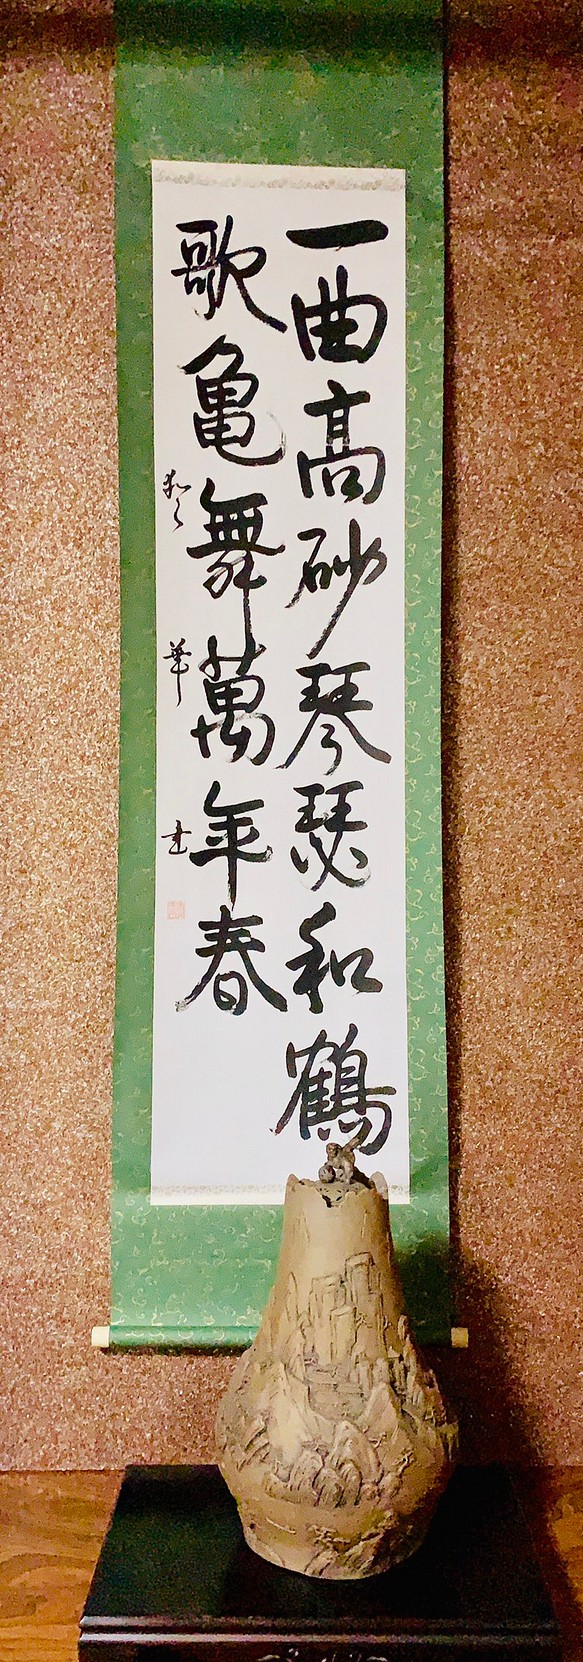 一曲高砂琴瑟和鶴
歌亀舞萬年春
華